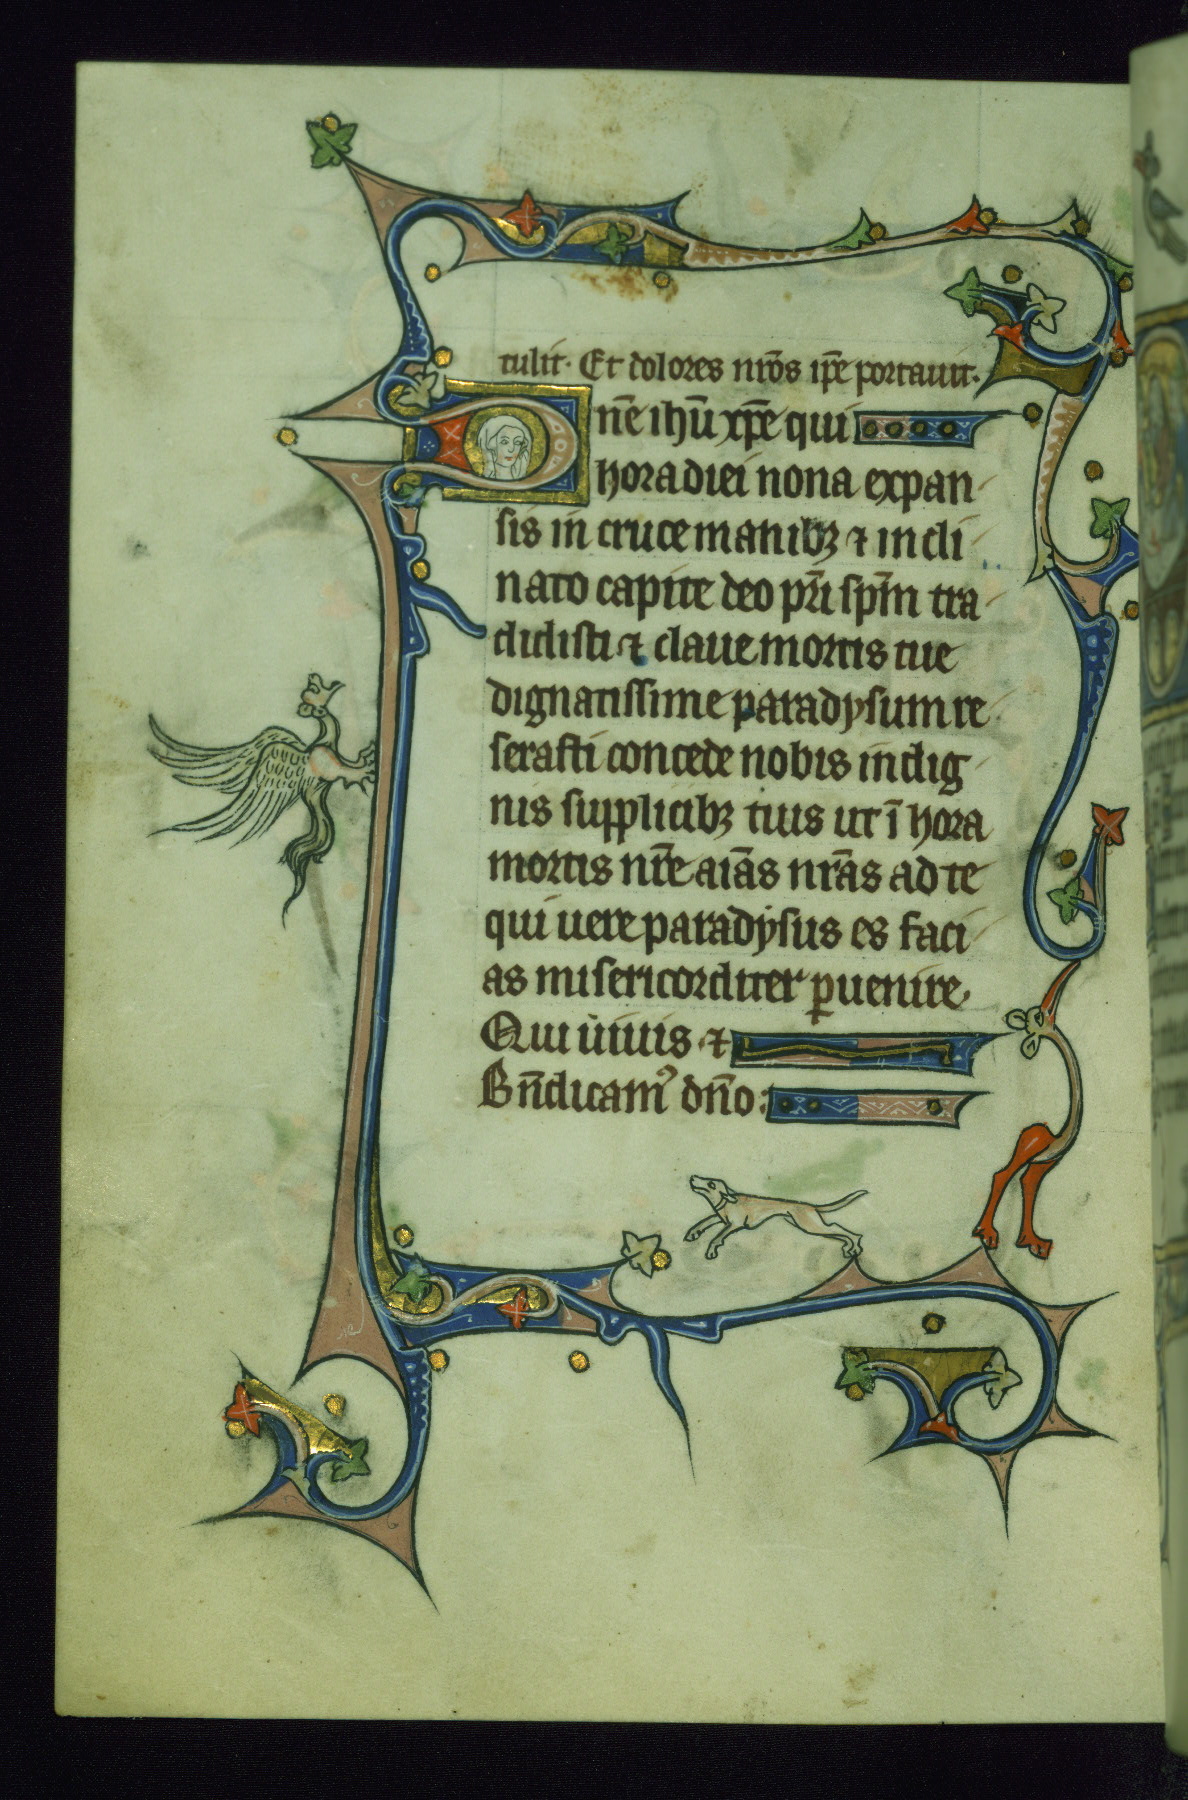 tulit. Et dolores nr̄os ip̄e portauit.
Dn̄e ihū xp̄e qui
hora diei nona expan
sis in cruce manibꝫ ⁊ incli
nato capite deo pr̄i sp̄m tra
didisti ⁊ claue mortis tue
dignatissime paradysum re
serasti concede nobis indig
nis supplicibꝫ tuis ut ī hora
mortis nr̄e aīas nr̄as ad te
qui uere paradysus es faci
as misericorditer ꝑuenire.
Qui uiuis ⁊
Bn̄dicamꝰ dn̄o: